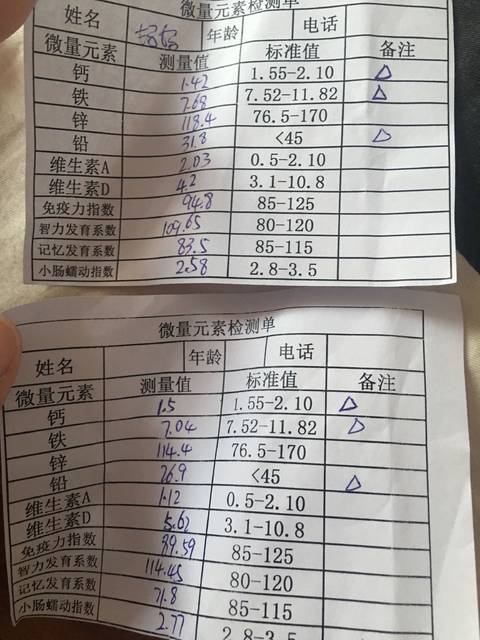 微量元素检测单
姓名 婷婷 年龄 电话
微量元素 测量值 标准值 备注
钙 1.42 1.55-2.10 △
铁 7.68 7.52-11.82 △
锌 118.4 76.5-170
铅 31.8 <45 △
维生素A 2.03 0.5-2.10
维生素D 4.2 3.1-10.8
免疫力指数 94.8 85-125
智力发育系数 109.65 80-120
记忆发育系数 83.5 85-115
小肠蠕动指数 2.58 2.8-3.5
微量元素检测单
姓名 年龄 电话
微量元素 测量值 标准值 备注
钙 1.5 1.55-2.10 △
铁 7.04 7.52-11.82 △
锌 114.4 76.5-170
铅 26.9 <45 △
维生素A 1.12 0.5-2.10
维生素D 5.62 3.1-10.8
免疫力指数 89.59 85-125
智力发育系数 114.45 80-120
记忆发育系数 71.8 85-115
小肠蠕动指数 2.77 2.8-3.5